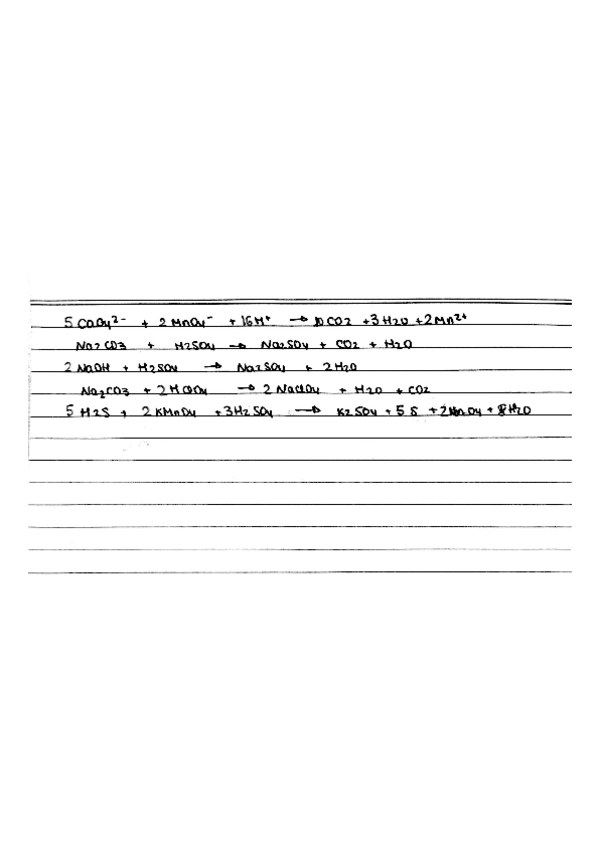 5 C2O4²⁻ + 2 MnO4⁻ + 16H⁺ → 10 CO2 + 3H2O + 2Mn²⁺
Na2CO3 + H2SO4 → Na2SO4 + CO2 + H2O
2 NaOH + H2SO4 → Na2SO4 + 2H2O
Na2CO3 + 2HClO4 → 2 NaClO4 + H2O + CO2
5 H2S + 2 KMnO4 + 3H2SO4 → K2SO4 + 5 S + 2MnO4 + 8H2O